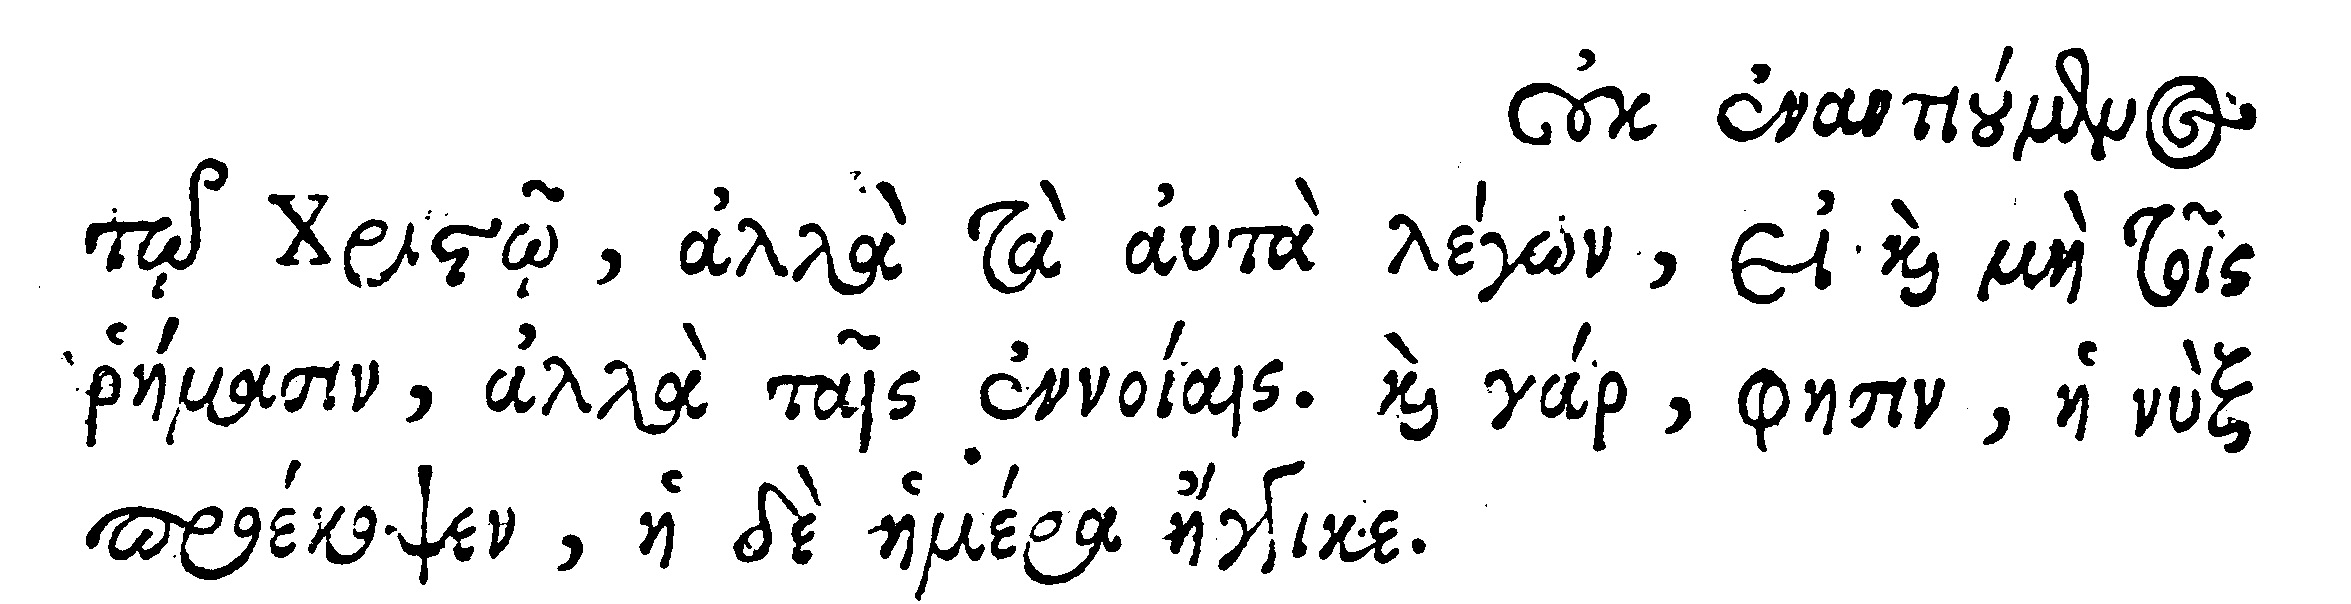 οὐκ ἐναντιούμενος
τῷ Χριστῷ, ἀλλὰ τὰ αὐτὰ λέγων, εἰ καὶ μὴ τοῖς
ῥήμασιν, ἀλλὰ ταῖς ἐννοίαις. καὶ γάρ, φησιν, ἡ νὺξ
προέκοψεν, ἡ δὲ ἡμέρα ἤγγικε.